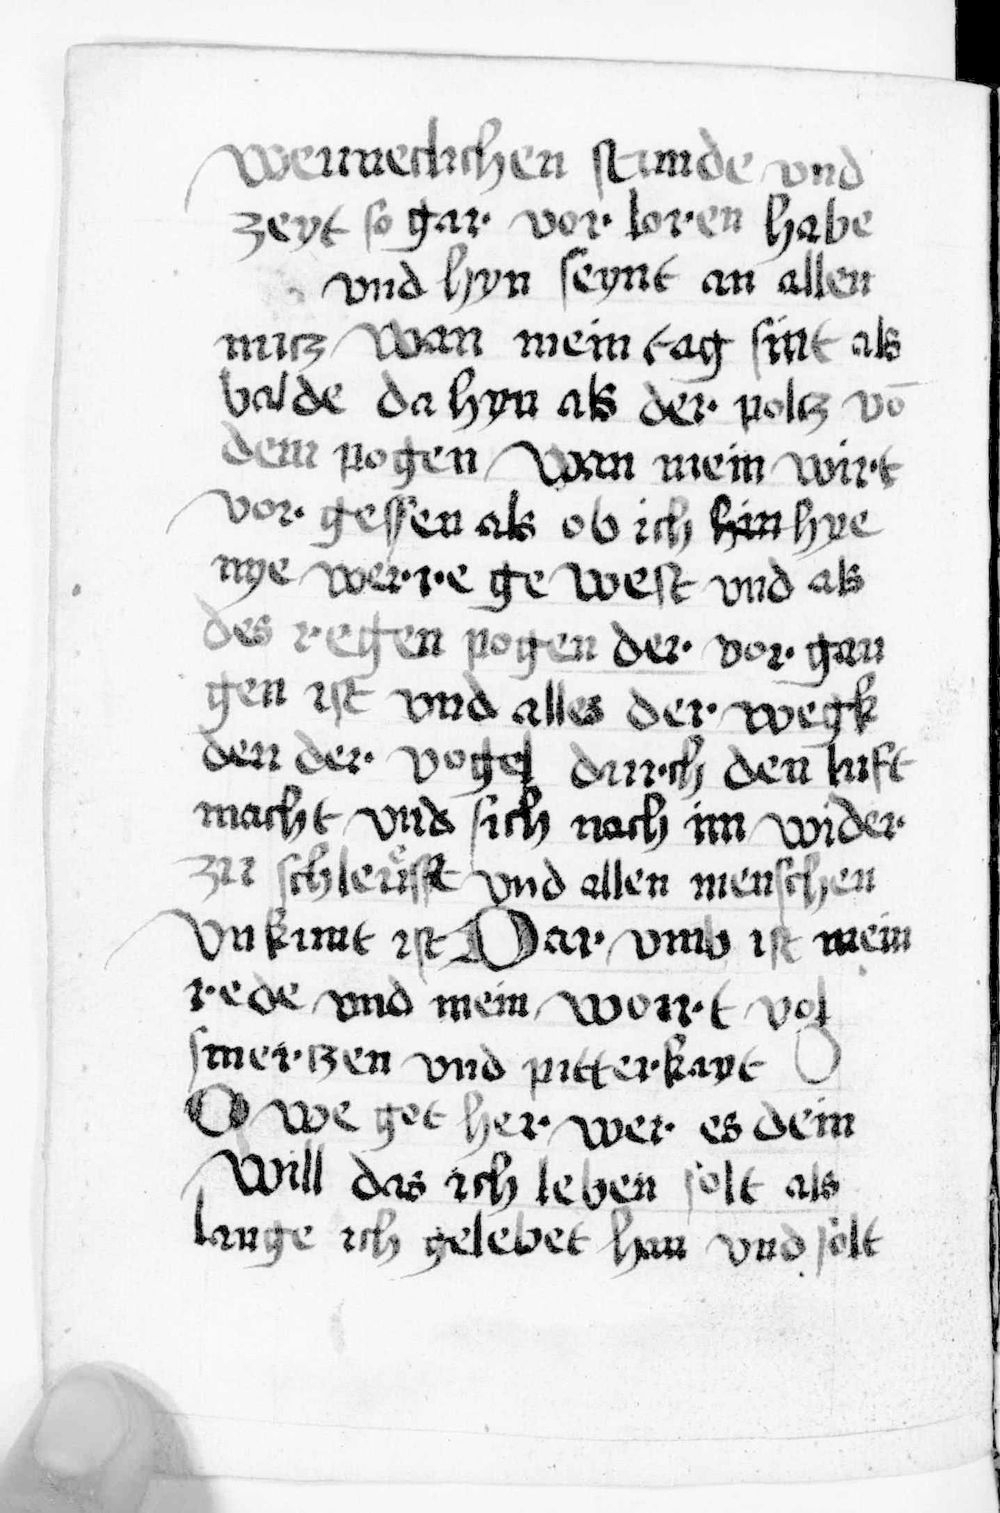 wenneclichen stunde vnd
zeyt so gar vor loren habe
vnd hyn seynt an allen
nutz wan mein tag sint als
balde da hyn als der poltz vō
dem pogen wan mein wirt
vor gessen als ob ich hin hye
nye werre ge west vnd als
des regen pogen der vor gan
gen ist vnd alles der wegk
den der vogel durch den luft
macht vnd sich nach im wider
zu schleuͤsst vnd allen menschen
vnkunt ist Dar vmb ist mein
rede vnd mein wort vol
smertzen vnd pitterkayt O
O we get her wer es dein
will das ich leben solt als
lange ich gelebet han vnd solt